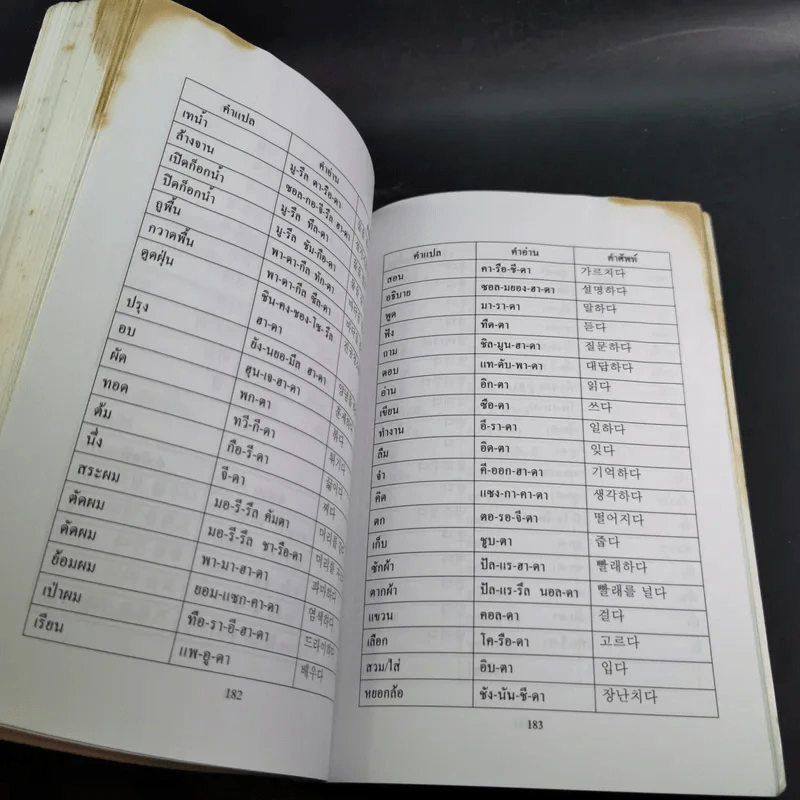 คำแปล คำอ่าน
เทน้ำ มู-รึล ตา-รือ-ดา
ล้างจาน ซอล-กอ-จี-รึล ฮา-ดา
เปิดก็อกน้ำ มู-รึล ทึล-ดา
ปิดก็อกน้ำ มู-รึล ชัม-กือ-ดา
ถูพื้น พา-ดา-กึล ทัก-ดา
กวาดพื้น พา-ดา-กึล ซึล-ดา
ดูดฝุ่น ชิน-คง-ชอง-โซ-รึล
ฮา-ดา
ปรุง ยัง-นยอ-มึล ฮา-ดา
อบ ฮุน-เจ-ฮา-ดา
ผัด พก-ดา
ทอด ทวี-กี-ดา
ต้ม กือ-รี-ดา
นึ่ง จี-ดา
สระผม มอ-รี-รึล คัมดา
ตัดผม มอ-รี-รึล ชา-รือ-ดา
ดัดผม พา-มา-ฮา-ดา 파마하다
ย้อมผม ยอม-แซก-คา-ดา 염색하다
เป่าผม ทือ-รา-อี-ฮา-ดา 드라이하다
เรียน แพ-อู-ดา 배우다
182
คำแปล คำอ่าน คำศัพท์
สอน คา-รือ-ชี-ดา 가르치다
อธิบาย ซอล-มยอง-ฮา-ดา 설명하다
พูด มา-รา-ดา 말하다
ฟัง ทึด-ดา 듣다
ถาม ชิล-มูน-ฮา-ดา 질문하다
ตอบ แท-ดับ-พา-ดา 대답하다
อ่าน อิก-ดา 읽다
เขียน ซือ-ดา 쓰다
ทำงาน อี-รา-ดา 일하다
ลืม อิด-ดา 잊다
จำ คี-ออก-ฮา-ดา 기억하다
คิด แซง-กา-คา-ดา 생각하다
ตก ตอ-รอ-จี-ดา 떨어지다
เก็บ ชูบ-ดา 줍다
ซักผ้า ปัล-แร-ฮา-ดา 빨래하다
ตากผ้า ปัล-แร-รึล นอล-ดา 빨래를 널다
แขวน คอล-ดา 걸다
เลือก โค-รือ-ดา 고르다
สวม/ใส่ อิบ-ดา 입다
หยอกล้อ ชัง-นัน-ชี-ดา 장난치다
183